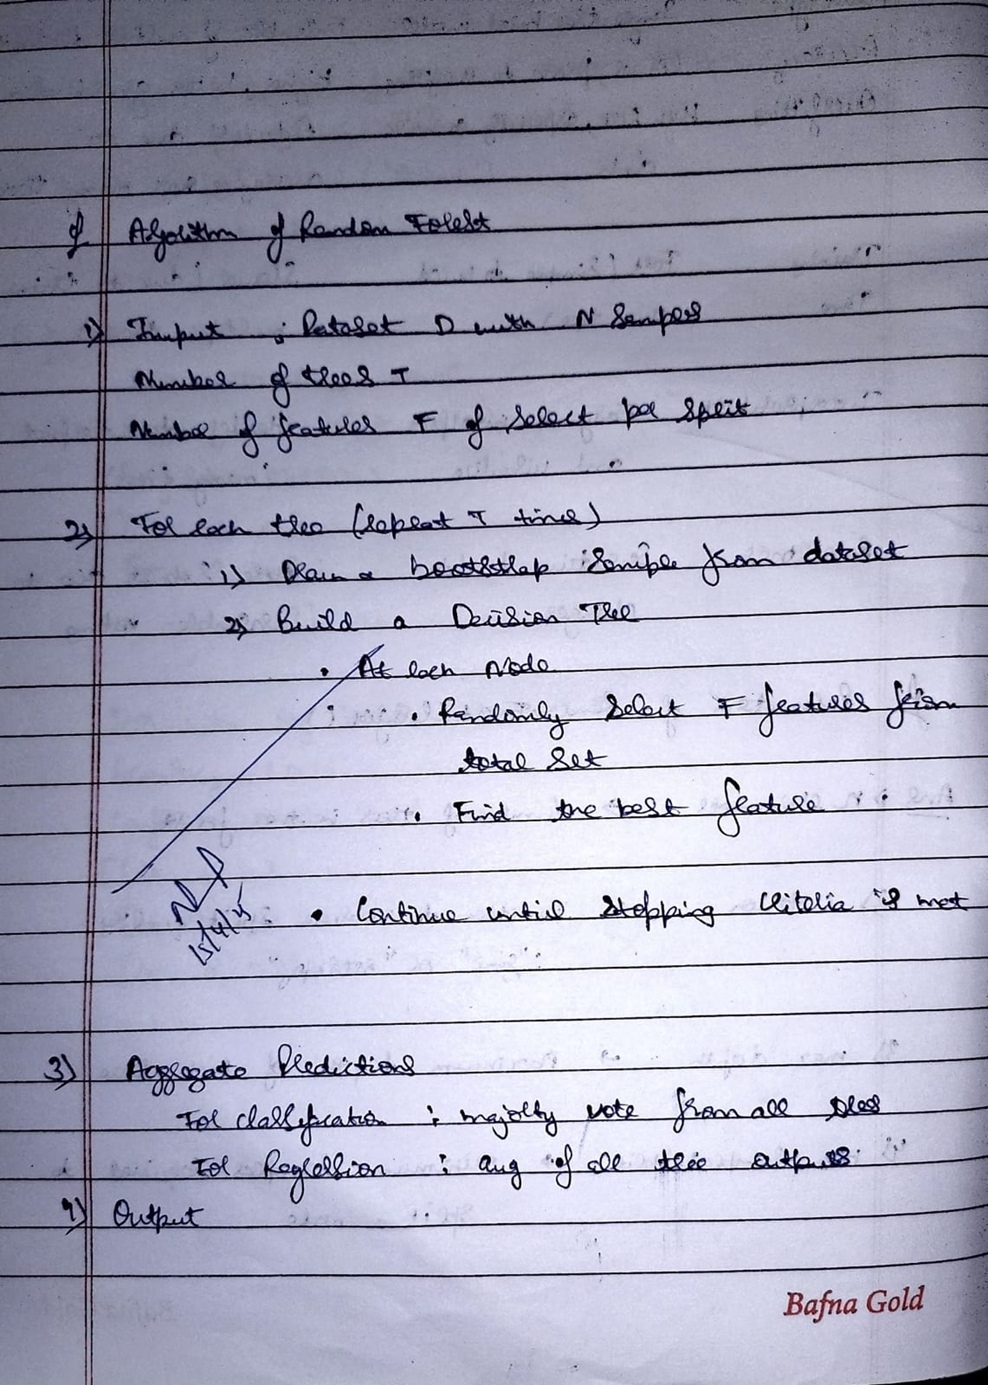 Algorithm of Random Forest
1) Input : Dataset D with N Samples
Number of trees T
Number of features F of select per split
2) For each tree (repeat T times)
1) Draw a bootstrap sample from dataset
2) Build a Decision Tree
• At each Node
• Randomly Select F features from
total Set
• Find the best feature
15/4/25
• Continue until stopping criteria is met
3) Aggregate Predictions
For classification : majority vote from all trees
For Regression : avg of all tree outputs
4) Output
Bafna Gold